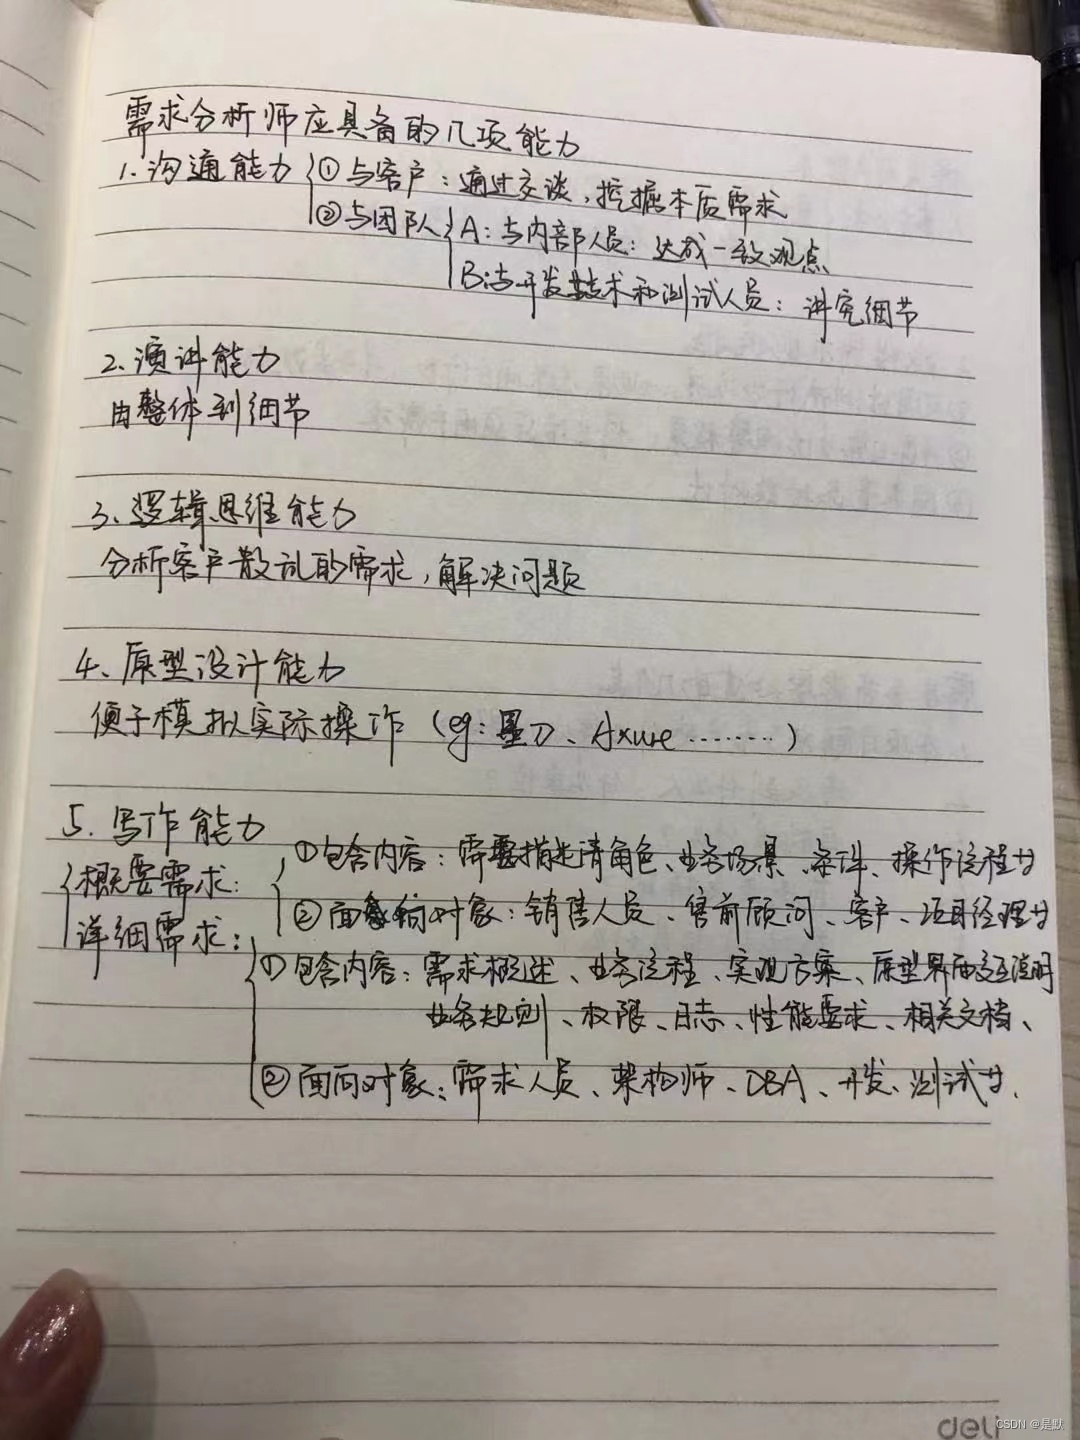 需求分析师应具备的几项能力
1.沟通能力 ①与客户：通过交谈,挖掘本质需求
②与团队 A：与内部人员：达成一致观点
B：与开发技术和测试人员：讲究细节
2.演讲能力
由整体到细节
3、逻辑思维能力
分析客户散乱的需求,解决问题
4、原型设计能力
便于模拟实际操作（eg：墨刀、Axure ........）
5.写作能力
①包含内容：需要描述清角色、业务场景、条件、操作流程等
概要需求：
②面向对象：销售人员、售前顾问、客户、项目经理等
详细需求：
①包含内容：需求概述、业务流程、实现方案、原型界面交互说明
业务规则、权限、日志、性能要求、相关文档、
②面向对象：需求人员、架构师、DBA、开发、测试等.
deli
CSDN @是默